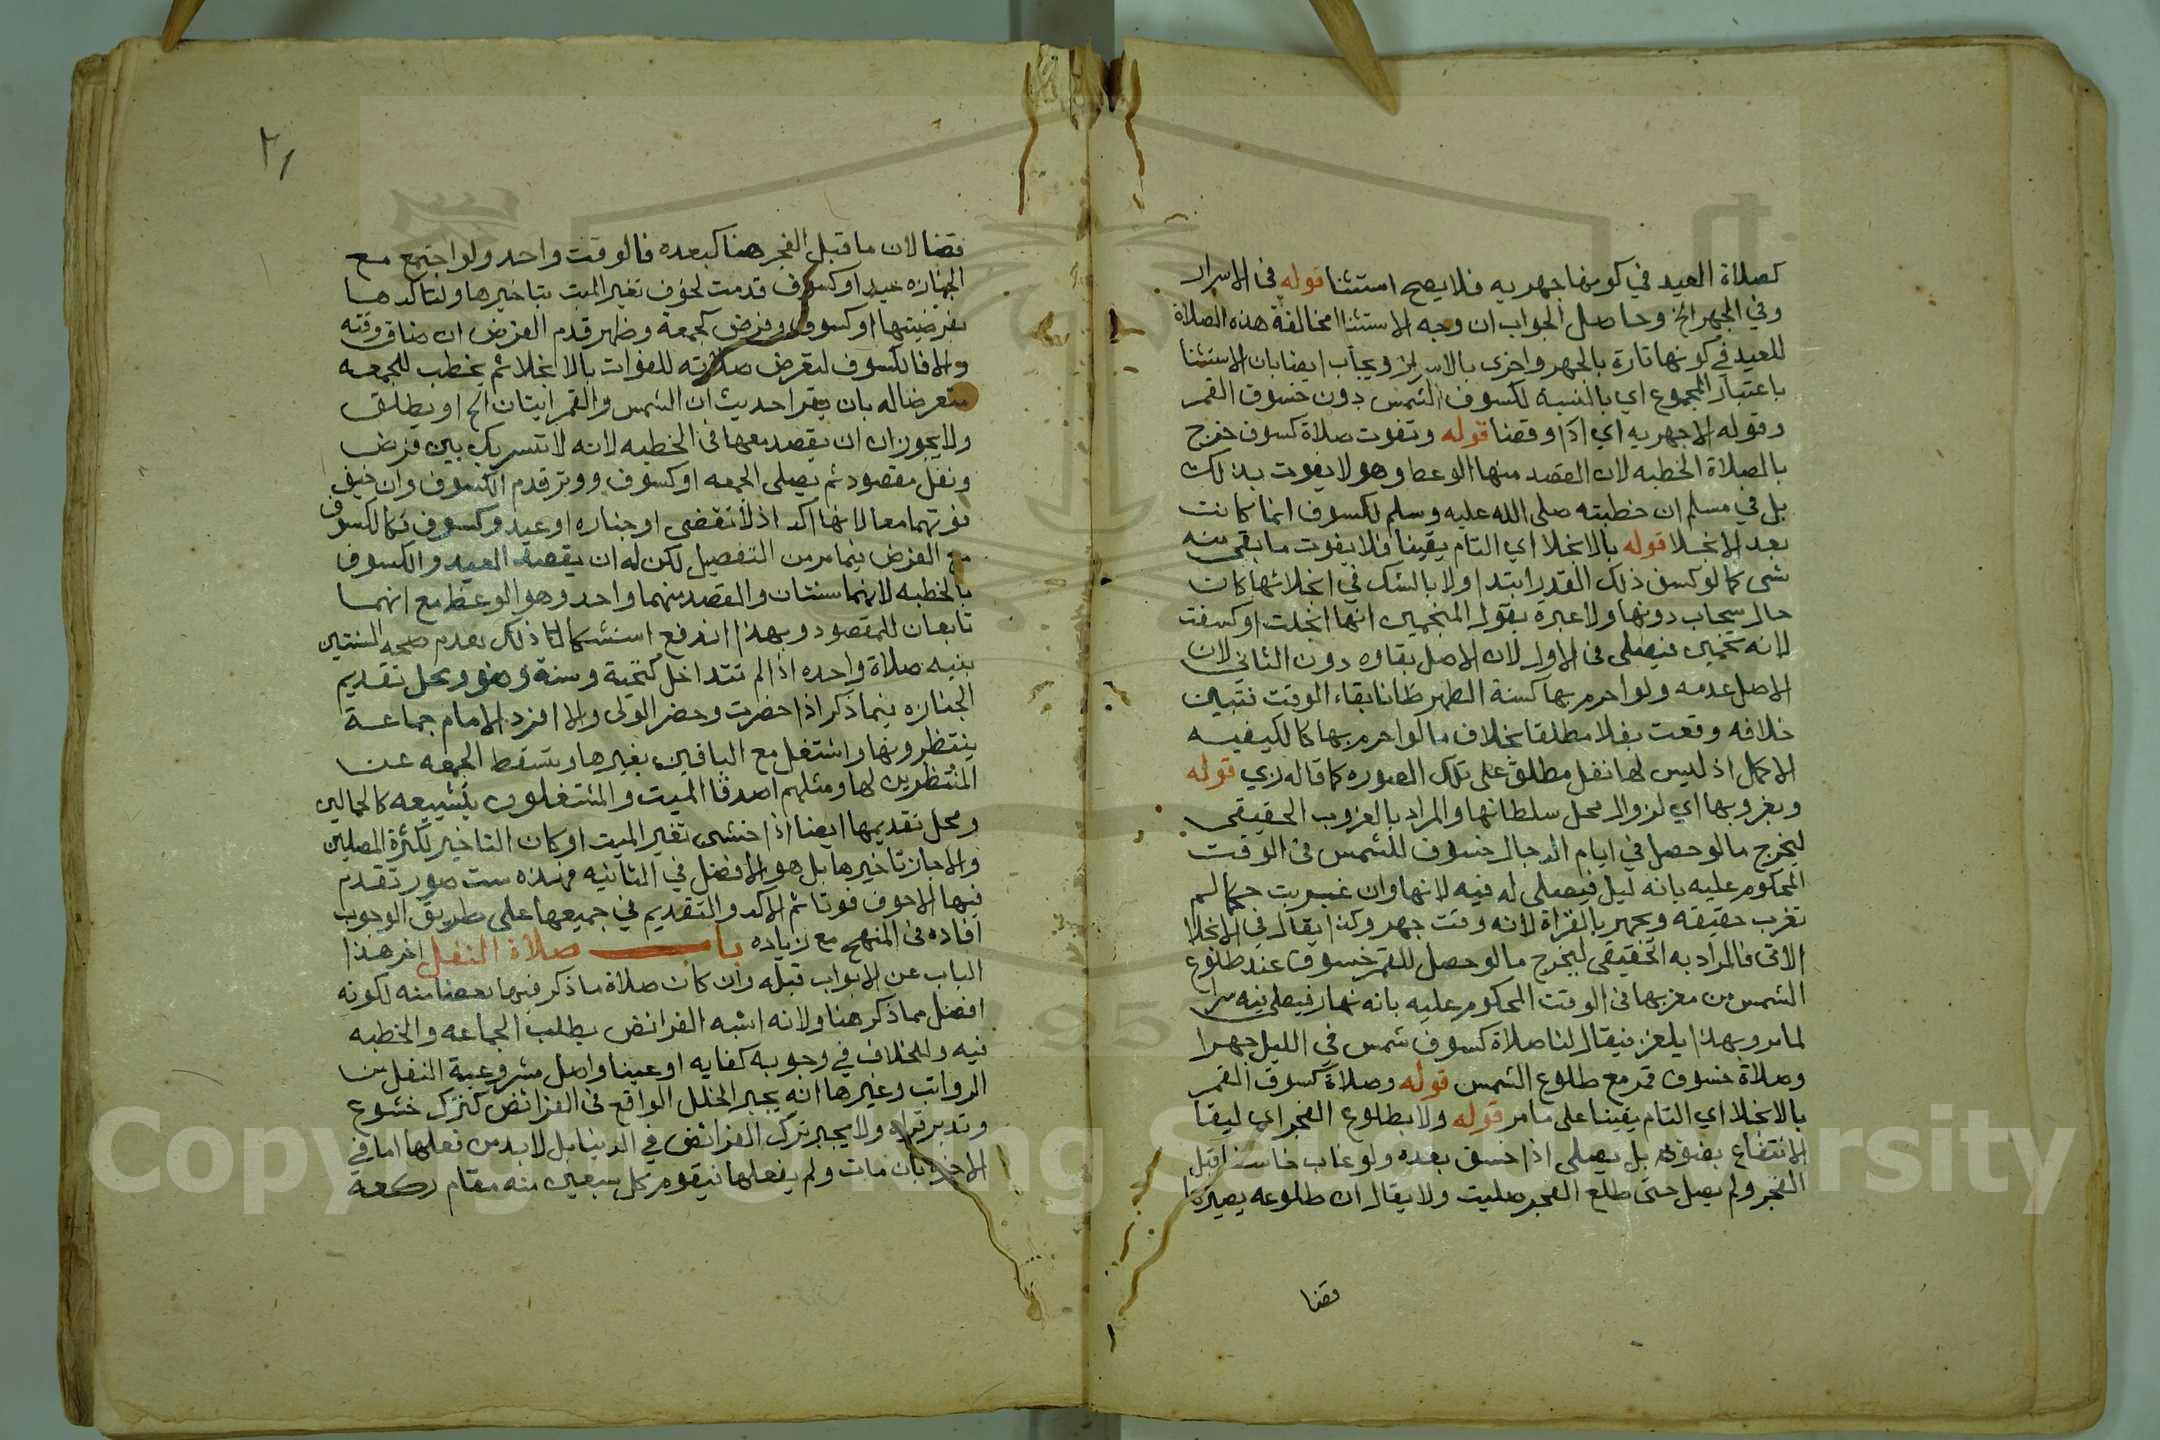 كصلاة العيد في كونها جهريه فلا يصح استثنا قوله في الاسرار
وفي الجهر الخ وحاصل الجواب ان وجه الاستثنا مخالفة هذه الصلاة
للعيد في كونها تارة بالجهر واخرى بالاسرار ويجاب ايضا بان الاستثنا
باعتبار المجموع اي بالنسبه لكسوف الشمس دون خسوف القمر
وقوله لاجهريه اي اذا وقضا قوله وتفوت صلاة كسوف خرج
بالصلاة الخطبه لان القصد منها الوعط وهو لا يفوت بذلك
بل في مسلم ان خطبته صلى الله عليه وسلم لكسوف انما كانت
بعد الانجلا قوله بالانجلا اي التام يقينا فلا يفوت ما بقي منه
شى كما لو كسف ذلك القدر ابتدا ولا بالشك في انجلائها كان
حال سحاب دونها ولا عبرة بقول المنجمين انها انجلت او كسفت
لانه تخمين فيصلى في الاول لان الاصل بقاوه دون الثاني لان
الاصل عدمه ولو احرم بها كسنة الظهر ظانا بقاء الوقت فتبين
خلافه وقعت نفلا مطلقا بخلاف ما لو احرم بها كالكيفيه
الاكمل اذ ليس لها نفل مطلق على تلك الصوره كما قاله زي قوله
وبغروبها اي لزوال محل سلطانها والمراد بالغروب الحقيقي
ليخرج ما لو حصل في ايام الدجال خسوف للشمس في الوقت
المحكوم عليه بانه ليل فيصلى له فيه لانها وان غيبويت حكما لم
تغرب حقيقه ويجهر بالقراة لانه وقت جهر وكذا يقال في الانجلا
الاتى فالمراد به الحقيقي ليخرج ما لو حصل للقمر خسوف عند طلوع
الشمس من مغربها في الوقت المحكوم عليه بانه نهار فيصلى فيه سرا
لما مر وبهذا يلغز فيقال لنا صلاة كسوف شمس في الليل جهرا
وصلاة خسوف قمر مع طلوع الشمس قوله وصلاة كسوف القمر
بالانجلا اي التام يقينا على ما مر قوله ولا بطلوع الفجر اي لبقا
الانتفاع بضوئه بل يصلى اذا خسف بعده ولو غاب خاسفا قبل
الفجر ولم يصل حتى طلع الفجر صليت ولا يقال ان طلوعه يصيرها
قضا
٢١
قضا لان ما قبل الفجر هنا كبعده فالوقت واحد ولو اجتمع مع
الجنازه عيد او كسوف قدمت لخوف تغير الميت بتاخيرها ولتاكدها
بفرضيتها او كسوف وفرض كجمعة وظهر قدم الفرض ان ضاق وقته
والا فالكسوف لتعرض صلاته للفوات بالانجلا ثم يخطب للجمعه
متعرضا له بان يقرا حديث ان الشمس والقمر ايتان الخ او يطلق
ولا يجوز ان يقصد معها في الخطبه لانه لا تشريك بين فرض
ونفل مقصود ثم يصلى الجمعه او كسوف ووتر قدم الكسوف وان خيف
فوتهما معا لانها اكد اذ لا تقضى او جنازه او عيد وكسوف فكالكسوف
مع الفرض فيما مر من التفصيل لكن له ان يقصد العيد والكسوف
بالخطبه لانهما سنتان والقصد منهما واحد وهو الوعظ مع انهما
تابعان للمقصود وبهذا اندفع استشكال ذلك بعدم صحه السنتين
بنيه صلاة واحده اذا لم تتداخل كتحية وسنة وضو ومحل تقديم
الجنازه فيما ذكر اذا حضرت وحضر الولي والا افرد الامام جماعة
ينتظرونها واشتغل مع الباقين بغيرها وتسقط الجمعه عن
المنتظرين لها ومثلهم اصدقا الميت والمشتغلون بتشييعه كالحمالين
ومحل تقديمها ايضا اذا خشى تغير الميت او كان التاخير لكثرة المصلين
والا جاز تاخيرها بل هو الافضل في الثانيه فهذه ست صور تقدم
فيها الاخوف فوتا ثم الاكد والتقديم في جميعها على طريق الوجوب
افاده في المنهج مع زياده باب صلاة النفل اخر هذا
الباب عن الابواب قبله وان كان صلاة ما ذكر فيها بعضا منه لكونه
افضل مما ذكر هنا ولانه اشبه الفرائض بطلب الجماعه والخطبه
فيه وللخلاف في وجوبه كفايه او عينا واصل مشروعية النفل من
الرواتب وغيرها انه يجبر الخلل الواقع في الفرائض كترك خشوع
وتدبر قراه ولا يجبر ترك الفرائض في الدنيا بل لا بد من فعلها اما في
الاخره بان مات ولم يفعلها فيقوم كل سبعين منه مقام ركعة
Copyright © King Saud University